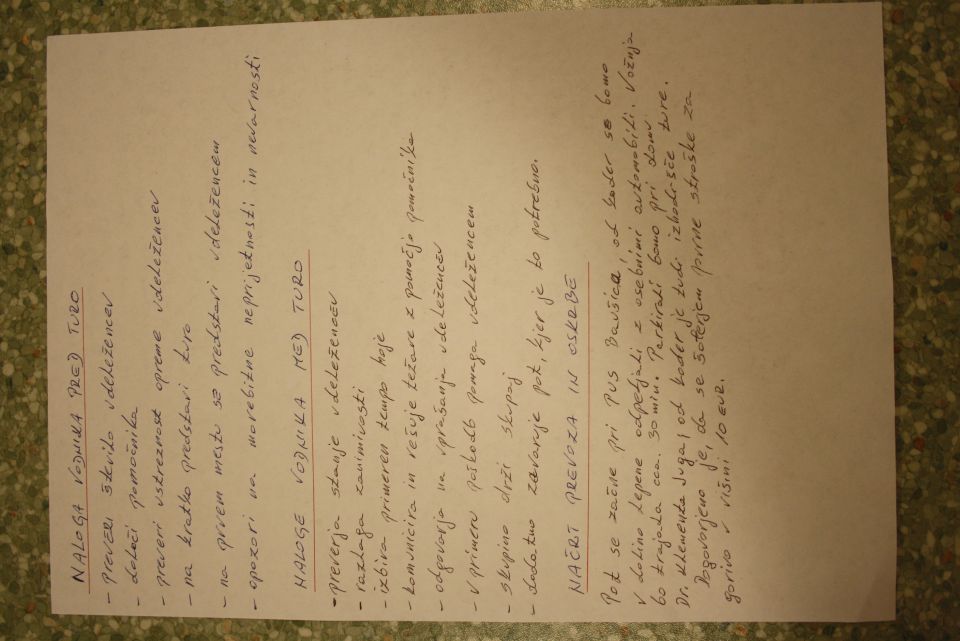 NALOGA VODNIKA PRED TURO
- preveri število vdeležencev
- določi pomočnika
- preveri ustreznost opreme vdeležencev
- na kratko predstavi turo
- na prvem mestu se predstavi vdeležencem
- opozori na morebitne neprijetnosti in nevarnosti
NALOGE VODNIKA MED TURO
- preverja stanje vdeležencev
- razlaga zanimivosti
- izbira primeren tempo hoje
- komunicira in rešuje težave z pomočjo pomočnika
- odgovarja na vprašanja vdeležencev
- v primeru poškodb pomaga vdeležencem
- skupino drži skupaj
- dodatno zavaruje pot, kjer je to potrebno.
NAČRT PREVOZA IN OSKRBE
Pot se začne pri PUS Bavšica, od koder se bomo
v dolino Lepene odpeljali z osebnimi avtomobili. Vožnja
bo trajala cca. 30 min. Parkirali bomo pri domu
Dr. Klementa Juga, od koder je tudi izhodišče ture.
Dogovorjeno je, da se šoferjem povrne stroške za
gorivo v višini 10 EUR.